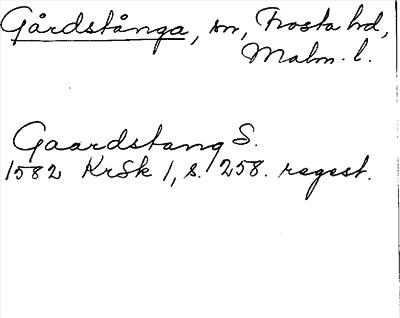 Gårdstånga, sn, Frosta hd,
Malm. l.
Gaardstang S.
1582 KrSk 1, s. 258. regest.